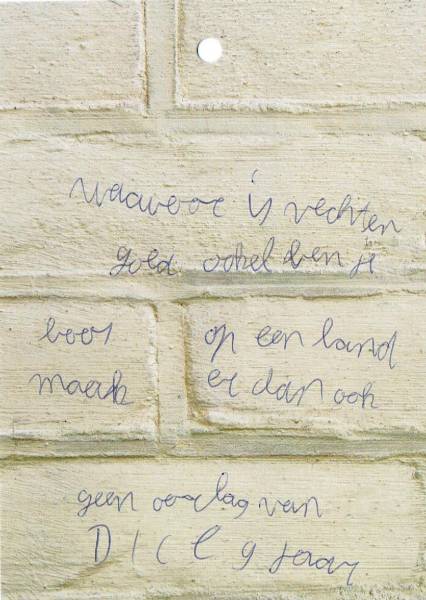 waavoor is vechten
goed. ookel ben je
boos op een land
maak er dan ook
geen oorlog van
9 jaar.